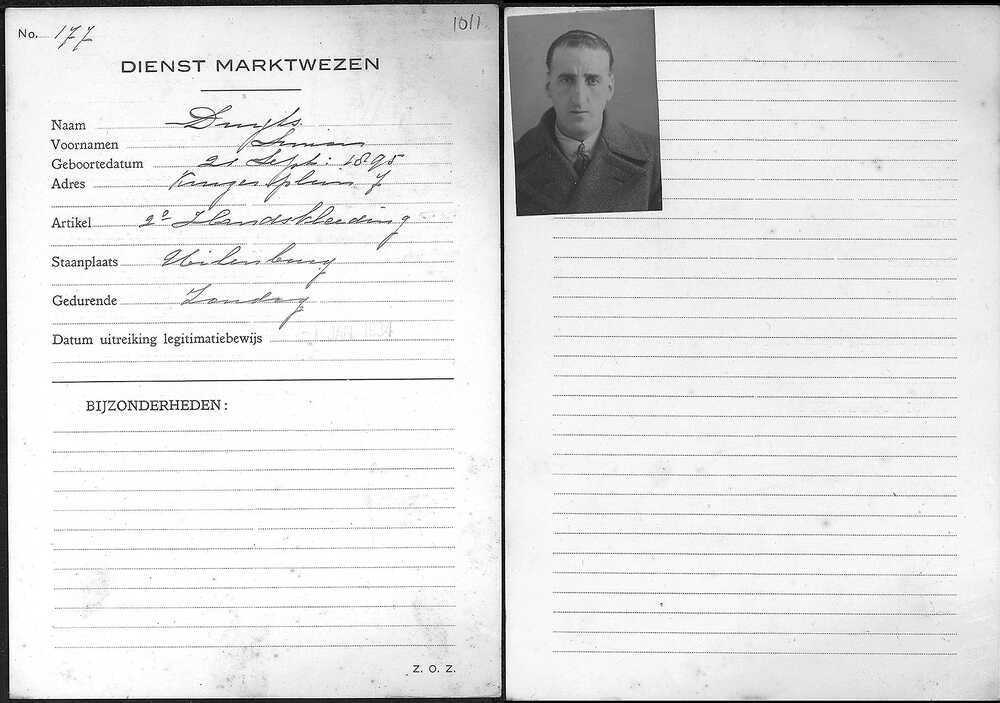 No. 177
1011
DIENST MARKTWEZEN
Naam Druyts
Voornamen Simon
Geboortedatum 21 Sept: 1895
Adres Krugersplein 7
Artikel 2e Handskleeding
Staanplaats Uilenburg
Gedurende Zondag
Datum uitreiking legitimatiebewijs
BIJZONDERHEDEN:
Z. O. Z.